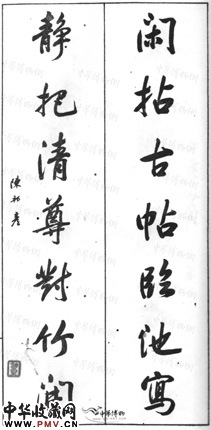 闲拈古帖临池写
静把清尊對竹開
中华博物
中华收藏网
www.PMV.CN